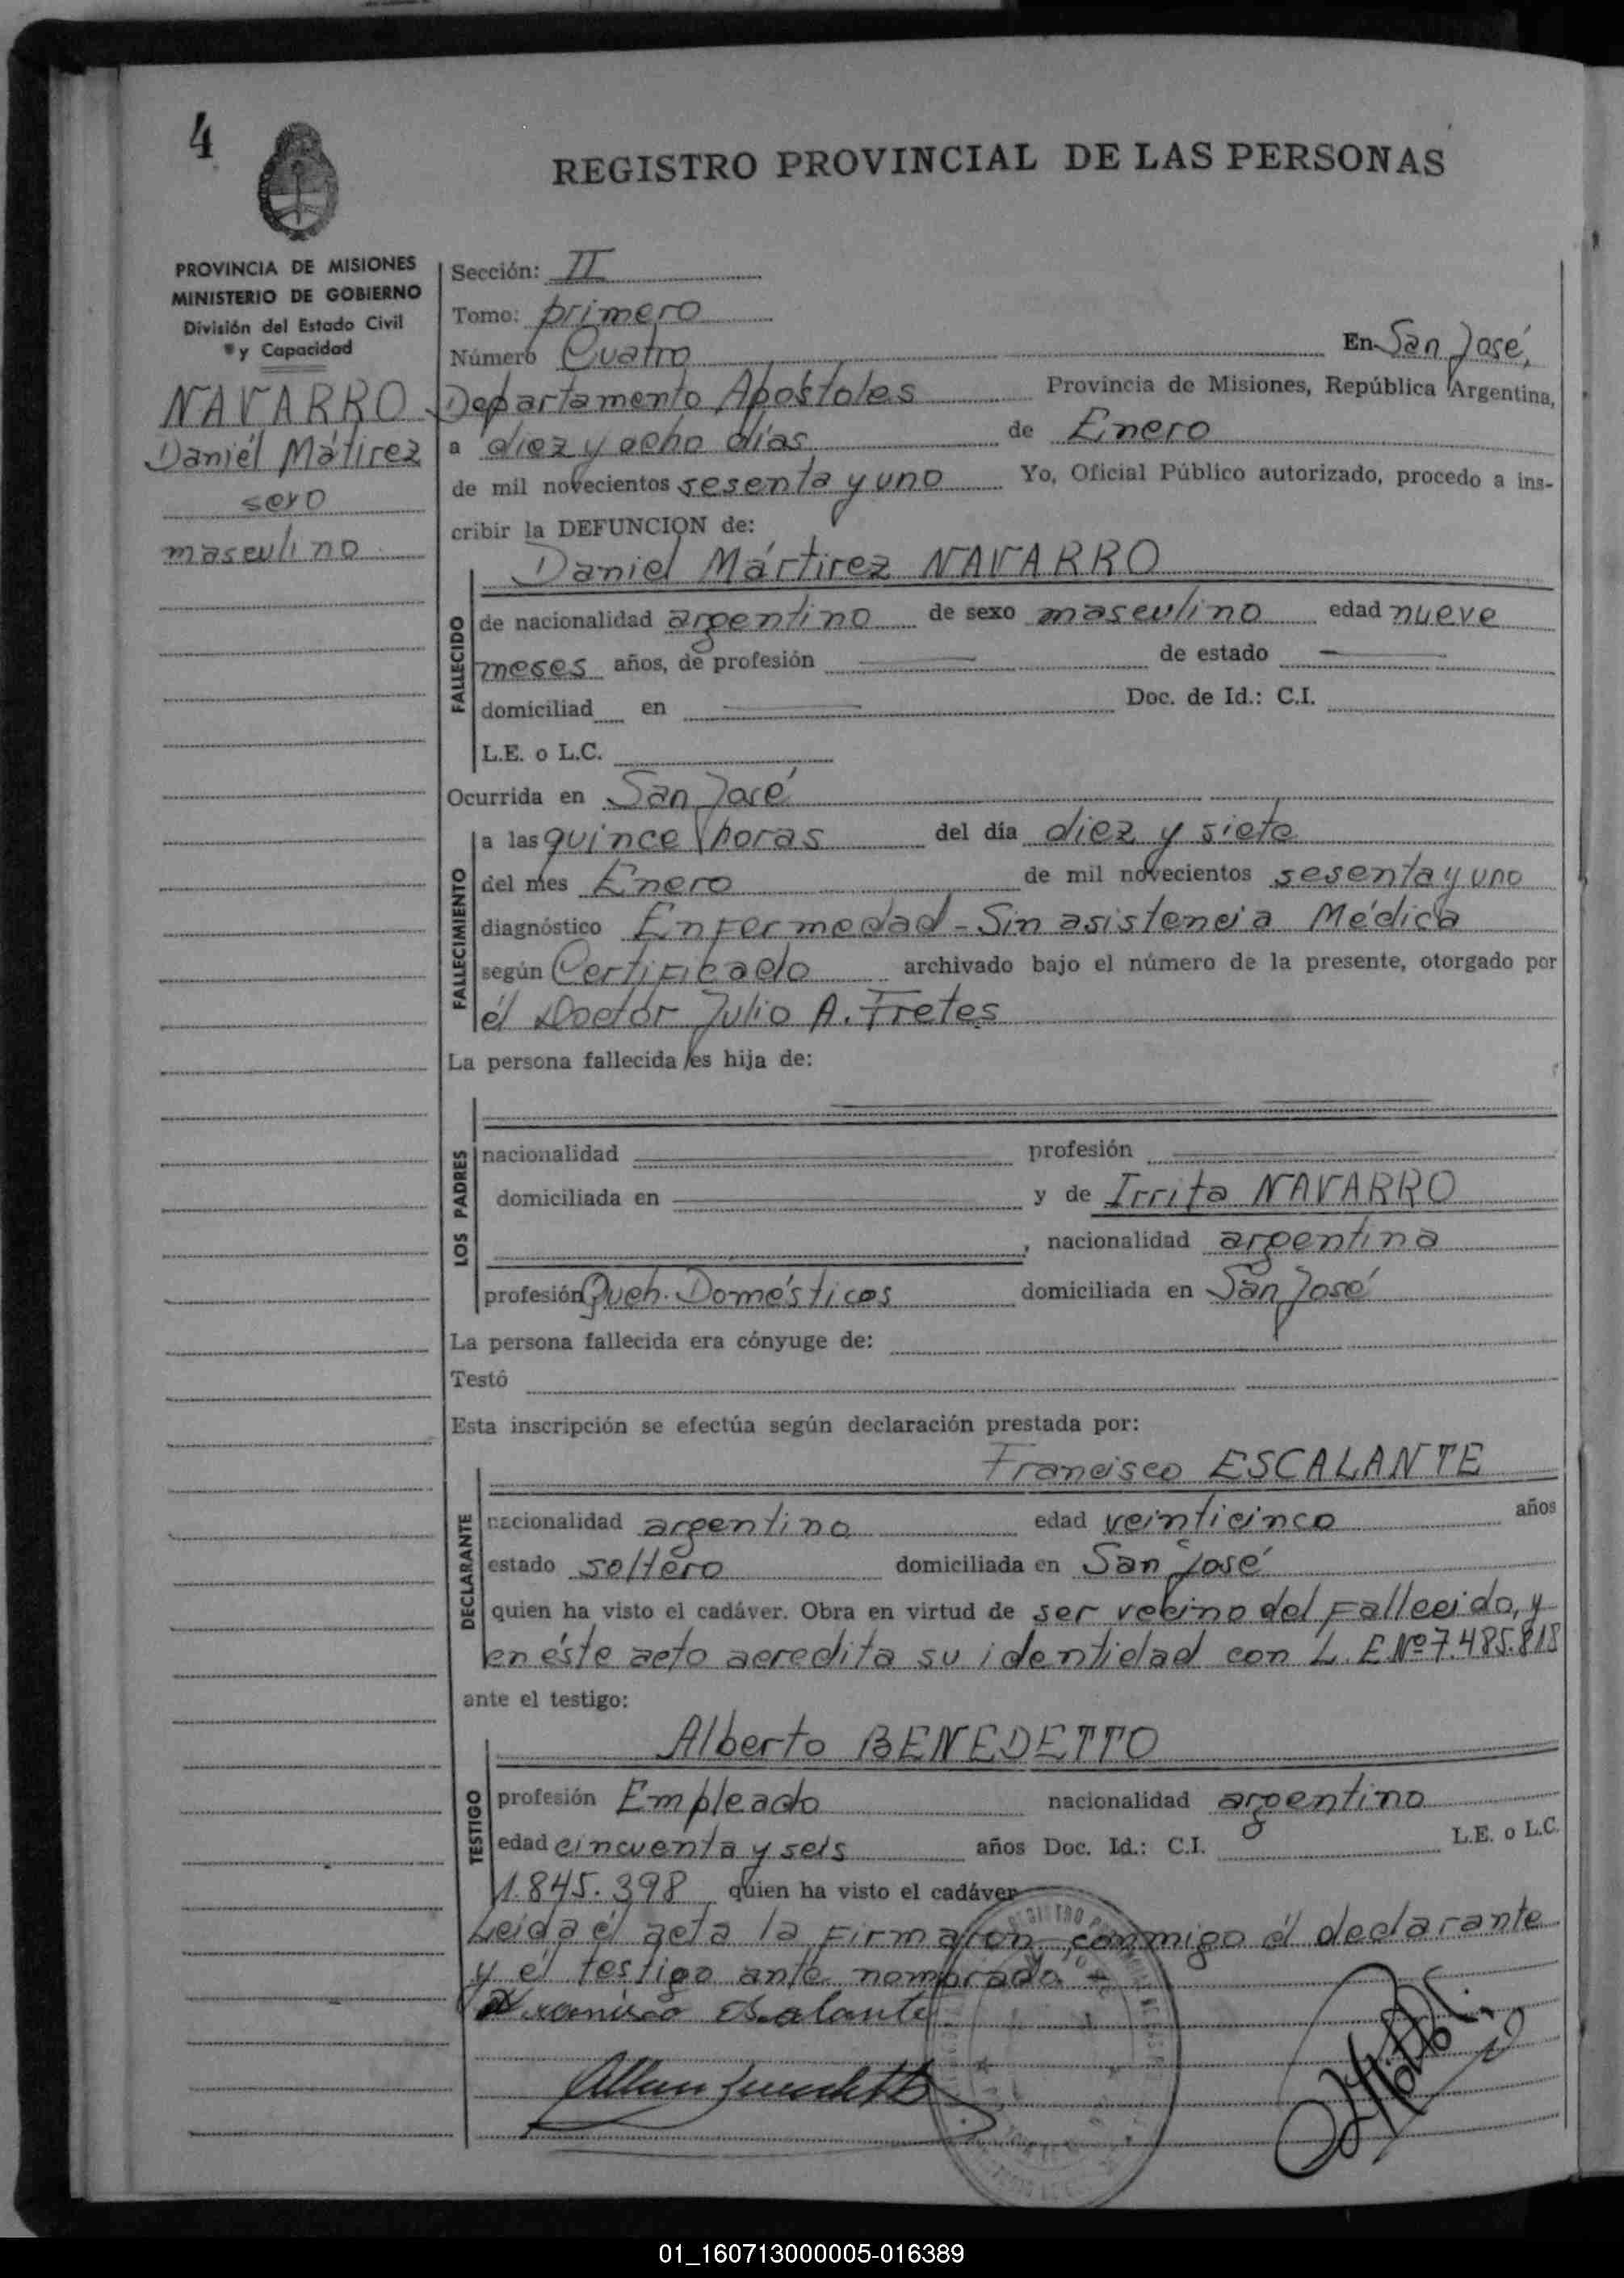 4
REGISTRO PROVINCIAL DE LAS PERSONAS
PROVINCIA DE MISIONES
MINISTERIO DE GOBIERNO
División del Estado Civil
y Capacidad
NAVARRO
Daniél Mátirez
sexo
masculino
Sección: II
Tomo: primero
Número Cuatro En San José,
Departamento Apóstoles Provincia de Misiones, República Argentina,
a diez y ocho días de Enero
de mil novecientos sesenta y uno Yo, Oficial Público autorizado, procedo a ins-
cribir la DEFUNCION de:
Daniel Mártirez NAVARRO
FALLECIDO
de nacionalidad argentino de sexo masculino edad nueve
meses años, de profesión de estado
domiciliad en Doc. de Id.: C.I.
L.E. o L.C.
Ocurrida en San José
FALLECIMIENTO
a las quince horas del día diez y siete
del mes Enero de mil novecientos sesenta y uno
diagnóstico Enfermedad - Sin asistencia Médica
según Certificado archivado bajo el número de la presente, otorgado por
él Doctor Julio A. Fretes
La persona fallecida es hija de:
LOS PADRES
nacionalidad profesión
domiciliada en y de Irrita NAVARRO
, nacionalidad argentina
profesión Queh. Domésticos domiciliada en San José
La persona fallecida era cónyuge de:
Testó
Esta inscripción se efectúa según declaración prestada por:
Francisco ESCALANTE
DECLARANTE
nacionalidad argentino edad veinticinco años
estado soltero domiciliada en San José
quien ha visto el cadáver. Obra en virtud de ser vecino del Fallecido, y
en éste acto acredita su identidad con L. E Nº 7.485.818
ante el testigo:
Alberto BENEDETTO
TESTIGO
profesión Empleado nacionalidad argentino
edad cincuenta y seis años Doc. Id.: C.I. L.E. o L.C.
1.845.398 quien ha visto el cadáver
Leida él acta la Firmaron conmigo él declarante
y él testigo ante nombrado
Francisco Escalante
01_160713000005-016389